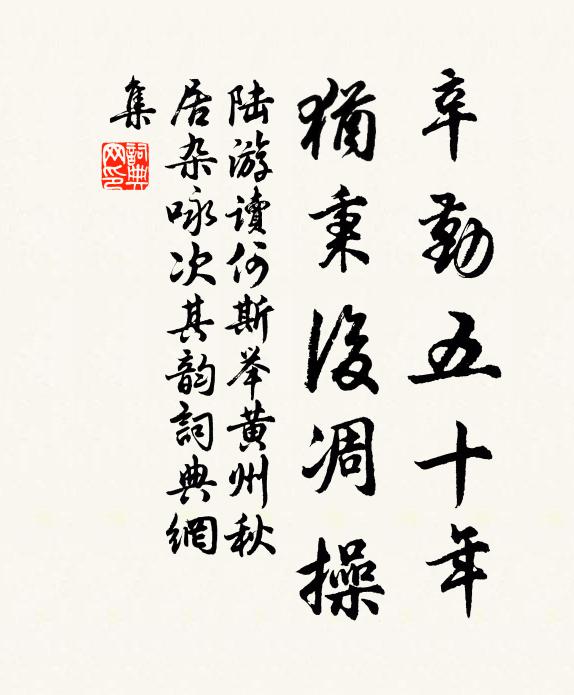 辛勤五十年
猶秉後凋操
陆游讀何斯举黄州秋
居杂咏次其韵詞典網
集
詞典
网印